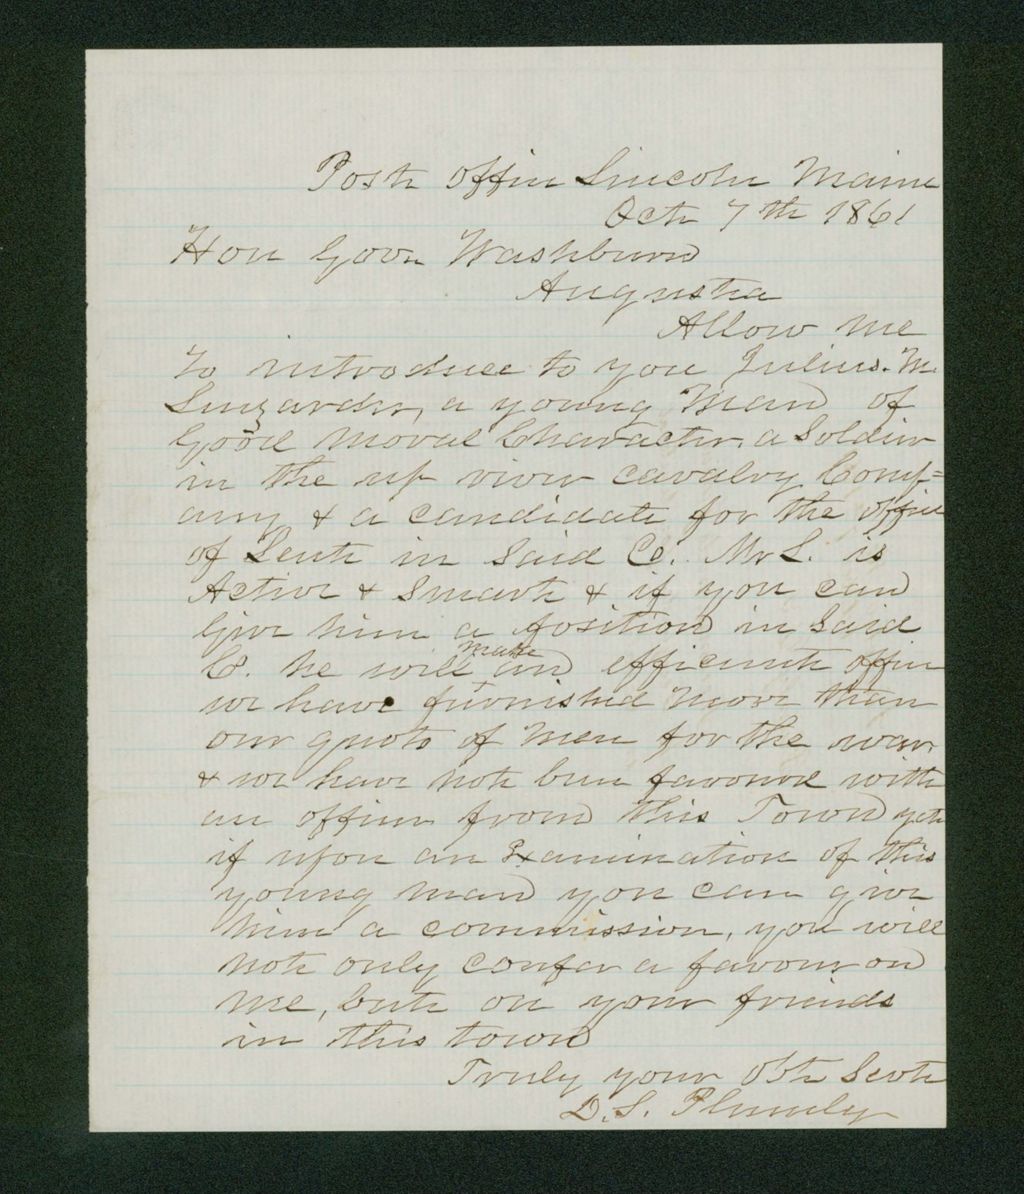 Post Office Lincoln Maine
Oct 7th 1861
Hon Gov Washburn
Augusta
Allow me
to introduce to you Julius. M.
a young Man of
Good Moral Character, a Soldier
in the up river cavalry Comp=
any & a candidate for the office
of Leut in Said Co. Mr L. is
Active & Smart & if you can
Give him a position in Said
Co. he will make an efficient officer
we have furnished more than
our quoto of Men for the war
& we have not been favored with
an officer from this Town yet
if upon an Examination of this
young man you can give
him a commission, you will
not only confer a favour on
me, but on your friends
in this town
Truly your Obt Sevt
D. S. Plumly